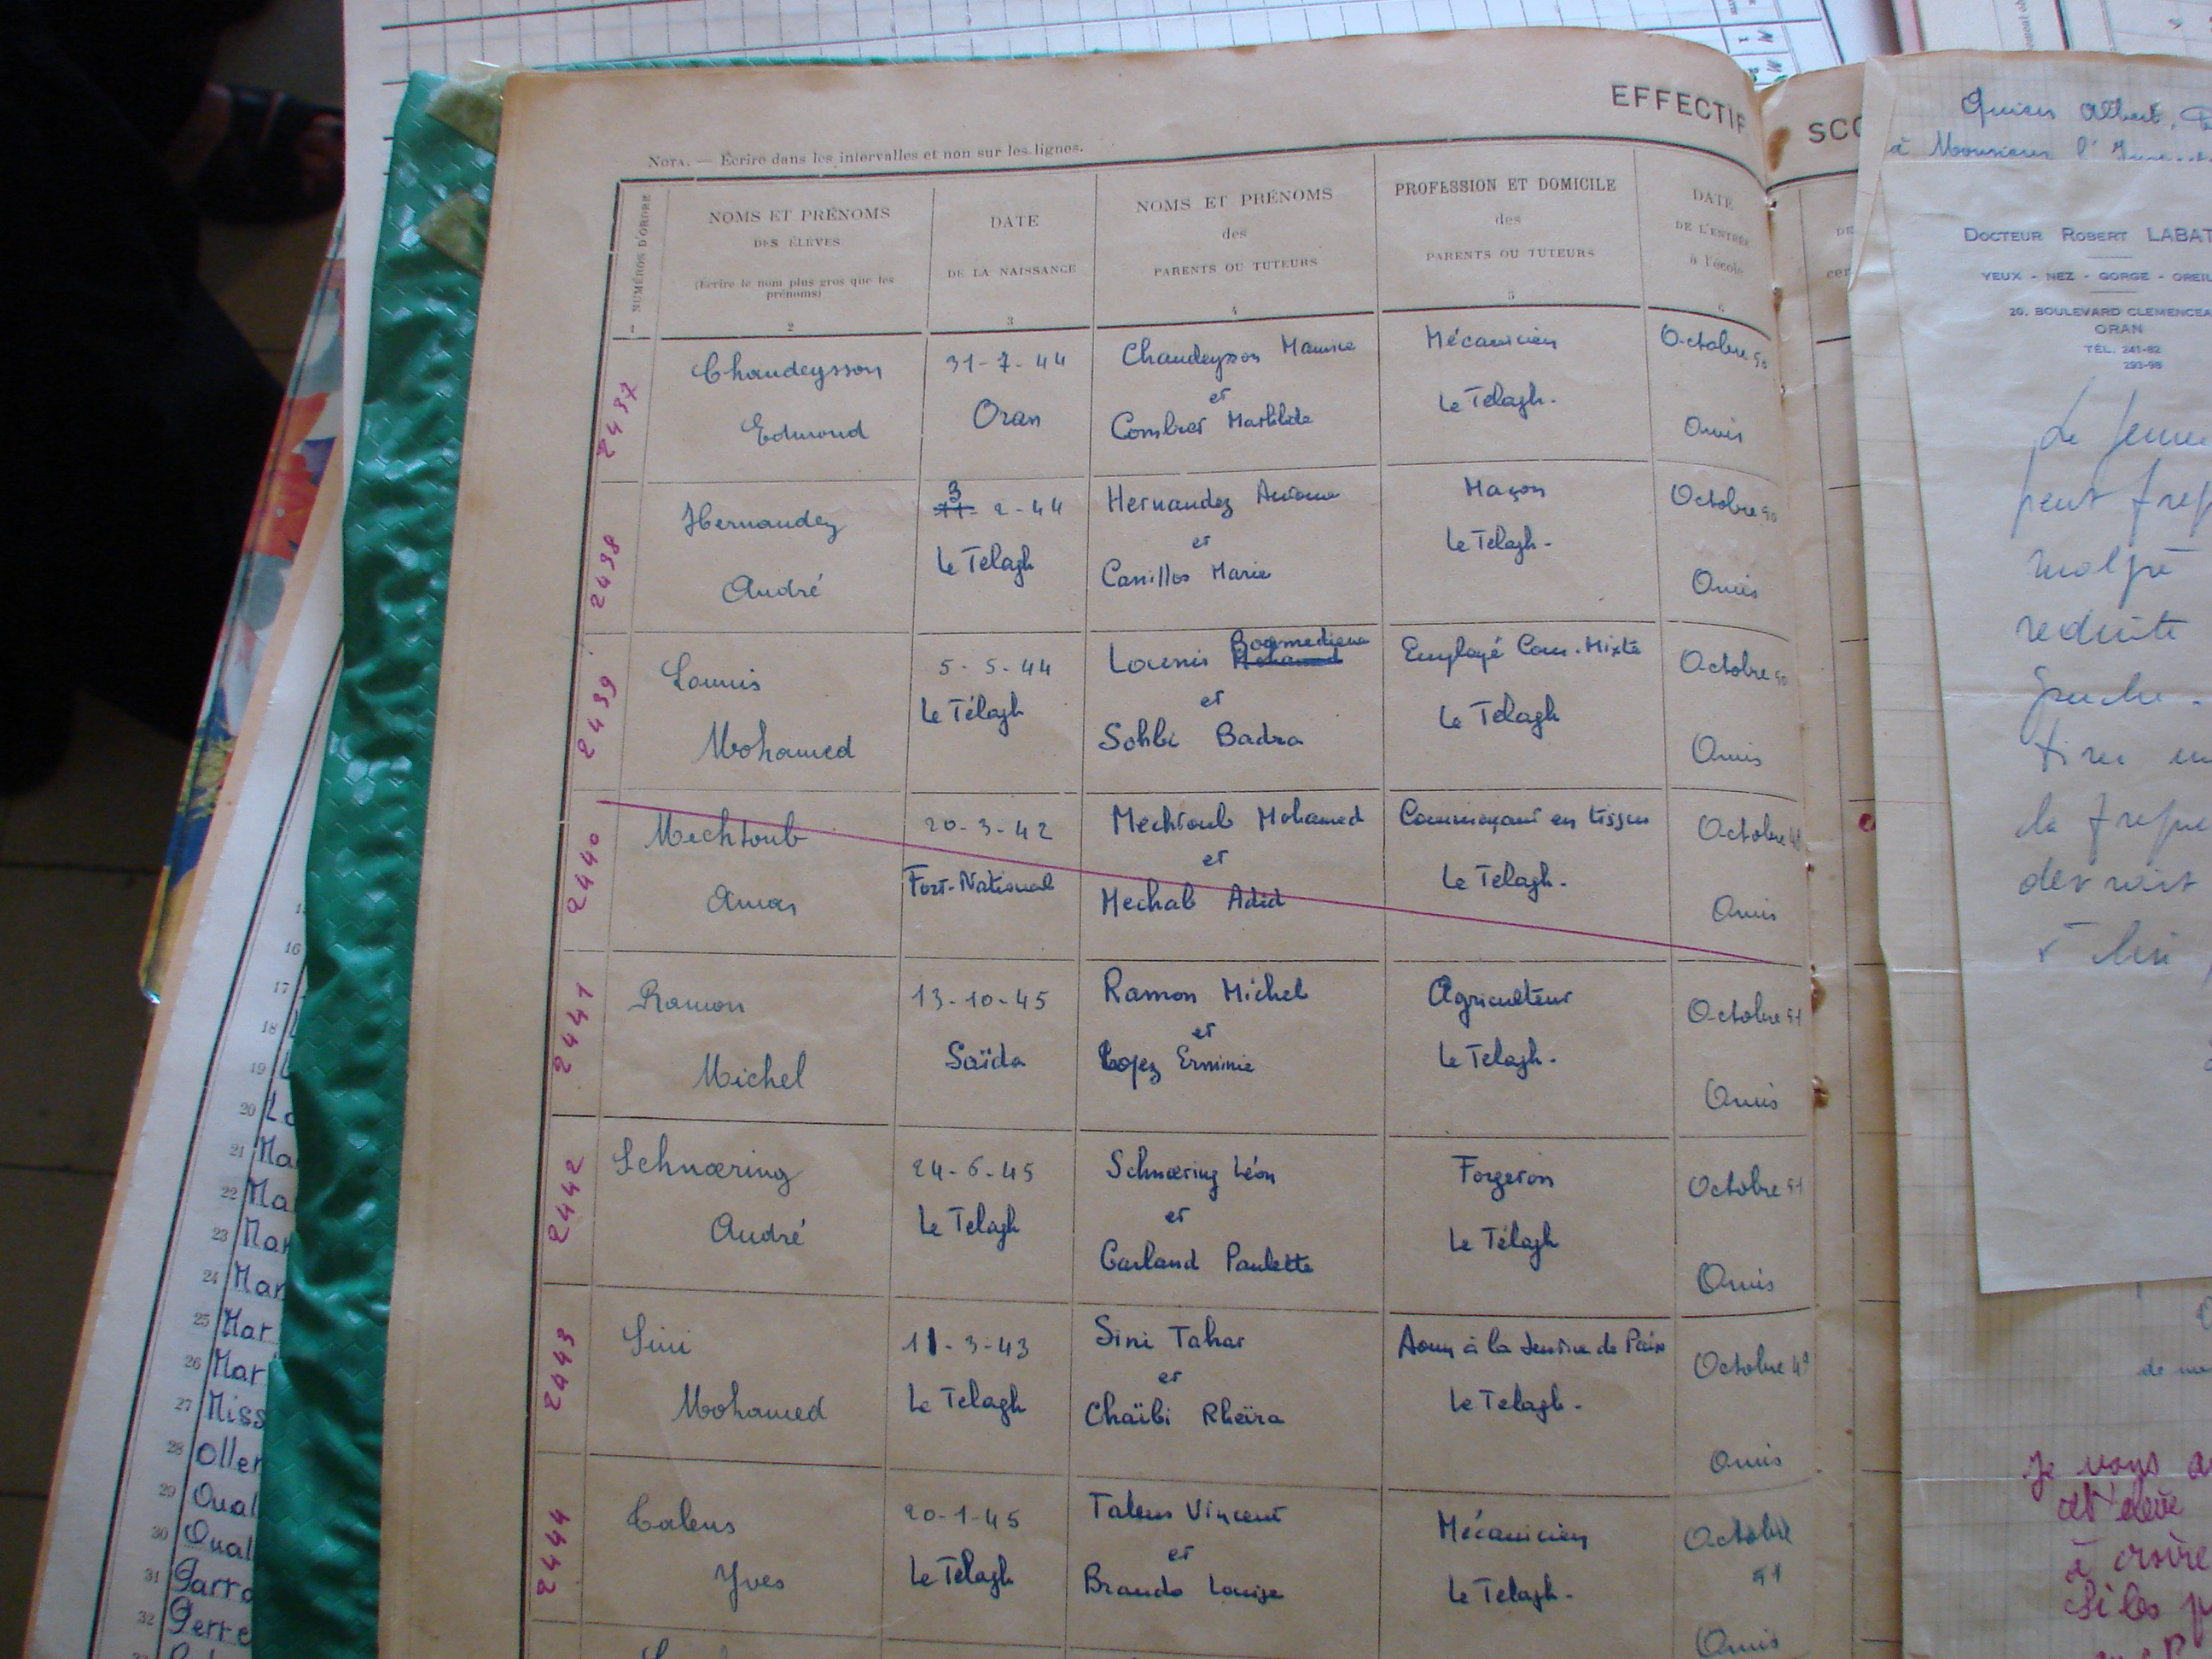 EFFECTIF
NOTA. — Écrire dans les intervalles et non sur les lignes.
NUMÉROS D'ORDRE
NOMS ET PRÉNOMS
DES ÉLÈVES
(Écrire le nom plus gros que les
prénoms)
DATE
DE LA NAISSANCE
NOMS ET PRÉNOMS
des
PARENTS OU TUTEURS
PROFESSION ET DOMICILE
des
PARENTS OU TUTEURS
DATE
DE L'ENTRÉE
à l'école
1
2
3
4
5
6
2437
Chaudeysson
Edmond
31-7-44
Oran
Chaudeysson Maurice
et
Combret Mathilde
Mécanicien
Le Telagh.
Octobre 50
Omis
2438
Hernandez
André
3
11- 2-44
Le Telagh
Hernandez Antoine
et
Canillos Marie
Maçon
Le Telagh-
Octobre 50
Omis
2439
Lounis
Mohamed
5-5-44
Le Télagh
Lounis Boumediene
Mohamed
et
Sohbi Badra
Employé Com. Mixte
Le Telagh
Octobre 50
Omis
2440
Mechtoub
Amar
20-3-42
Fort-National
Mechtoub Mohamed
et
Mechab Adid
Commerçant en tissus
Le Telagh.
Octobre 48
Omis
2441
Ramon
Michel
13-10-45
Saïda
Ramon Michel
et
Lopez Erminie
Agriculteur
Le Telagh.
Octobre 51
Omis
2442
Schnœring
André
24-6-45
Le Telagh
Schnœring Léon
et
Garland Paulette
Forgeron
Le Télagh
Octobre 51
Omis
2443
Sini
Mohamed
11-3-43
Le Telagh
Sini Tahar
et
Chaïbi Rheïra
Aoun à la Justice de Paix
Le Telagh.
Octobre 49
Omis
2444
Talens
Yves
20-1-45
Le Télagh
Talens Vincent
et
Brando Louise
Mécanicien
Le Telagh.
Octobre
51
Omis
SCO
Albert
à Monsieur l'
DOCTEUR ROBERT LABAT
YEUX - NEZ - GORGE - OREIL
20. BOULEVARD CLEMENCEA
ORAN
TÉL. 241-82
293-98
Le jeune
peut freq
malgré
réduite
gauche.
tirer
la freque
devrait
de
Je vous
cet élève
à croire
Si les p
16
17
18
19
20 La
21 Ma
22 Ma
23 Mar
24 Mar
25 Mar
26 Mar
27 Miss
28 Oller
29 Oual
30 Oual
31 Parro
32 Perre